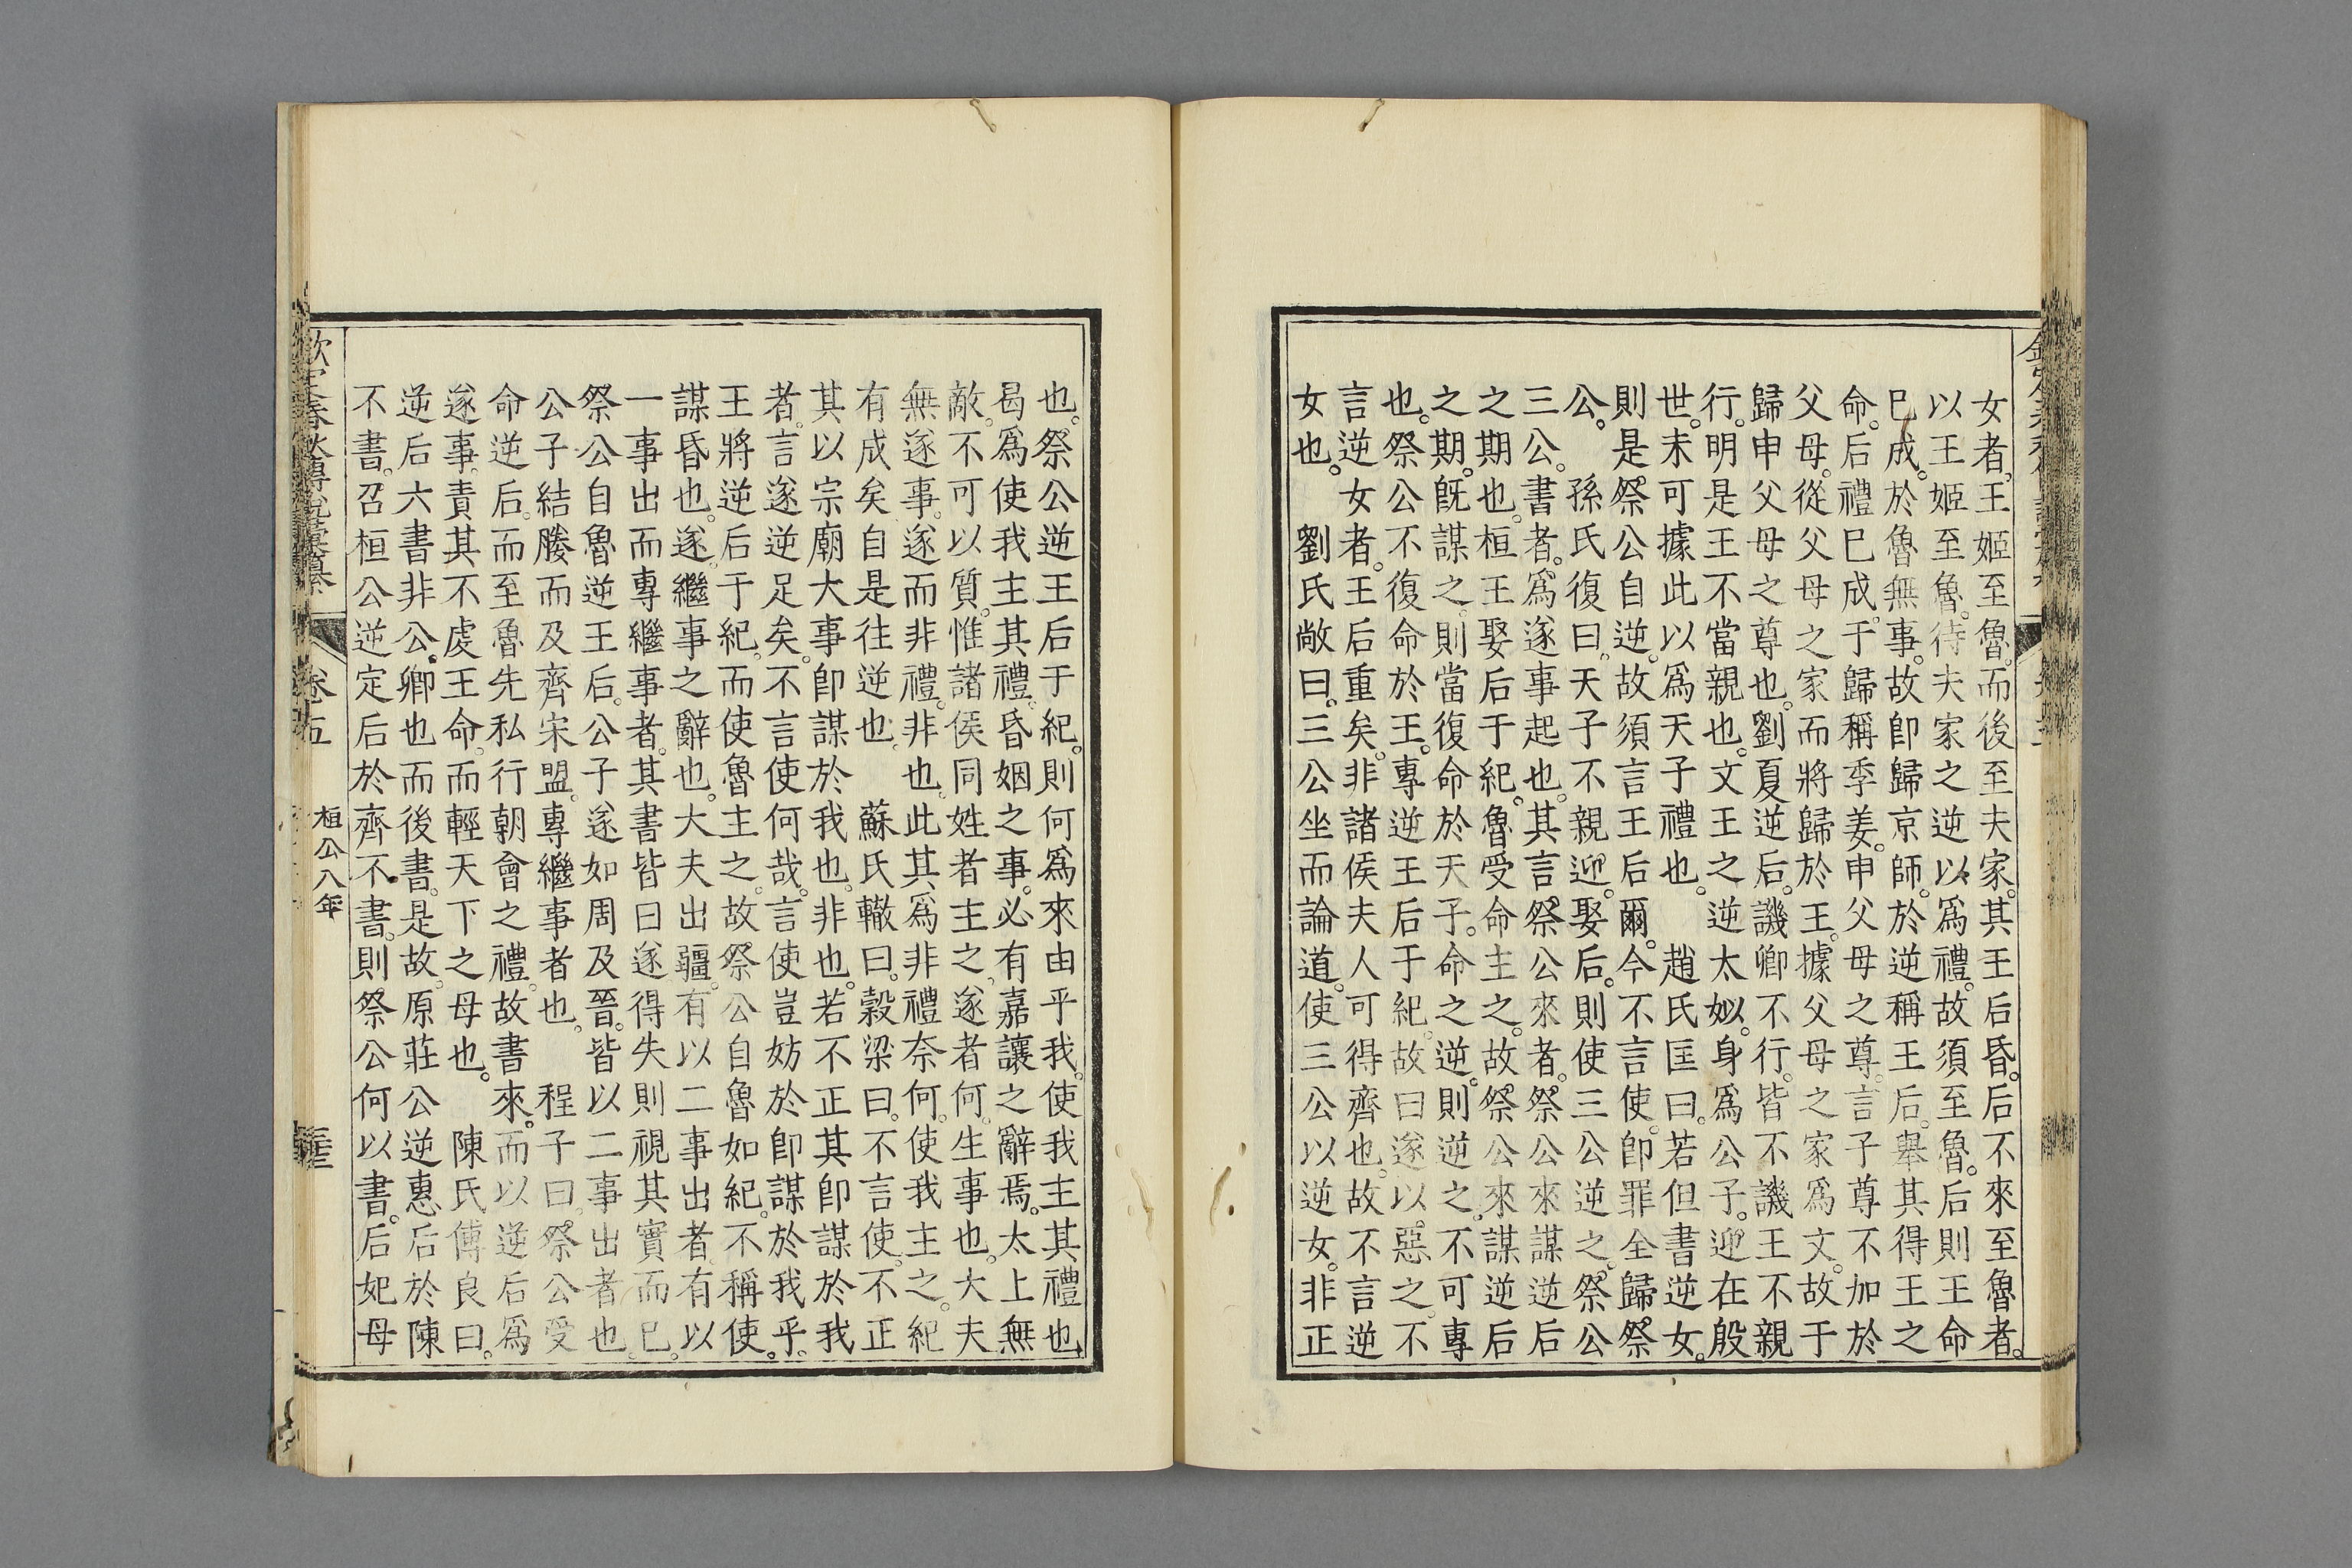 女者。王姬至魯。而後至夫家。其王后昏。后不來至魯者。
以王姬至魯。待夫家之逆以爲禮。故須至魯。后則王命
巳成。於魯無事。故卽歸京師。於逆稱王后。舉其得王之
命。后禮巳成。于歸稱季姜。申父母之尊。言子尊不加於
父母。從父母之家而將歸於王。據父母之家爲文。故于
歸申父母之尊也。劉夏逆后。譏卿不行。皆不譏王不親
行。明是王不當親也。文王之逆太姒。身爲公子。迎在殷
世。未可據此以爲天子禮也。　趙氏匡曰。若但書逆女。
則是祭公自逆。故須言王后爾。今不言使。卽罪全歸祭
公。　孫氏復曰。天子不親迎。娶后。則使三公逆之。祭公
三公。書者。爲遂事起也。其言祭公來者。祭公來謀逆后
之期也。桓王娶后于紀。魯受命主之。故祭公來謀逆后
之期。旣謀之。則當復命於天子。命之逆。則逆之。不可專
也。祭公不復命於王。專逆王后于紀。故曰遂以惡之。不
言逆女者。王后重矣。非諸侯夫人可得齊也。故不言逆
女也。　劉氏敞曰。三公坐而論道。使三公以逆女。非正
也。祭公逆王后于紀。則何爲來由乎我。使我主其禮也。
曷爲使我主其禮。昏姻之事。必有嘉讓之辭焉。太上無
敵。不可以質。惟諸侯同姓者主之。遂者何。生事也。大夫
無遂事。遂而非禮。非也。此其爲非禮奈何。使我主之。紀
有成矣自是往逆也。　蘇氏轍曰。穀梁曰。不言使。不正
其以宗廟大事卽謀於我也。非也。若不正其卽謀於我
者。言遂逆足矣。不言使何哉。言使豈妨於卽謀於我乎。
王將逆后于紀。而使魯主之。故祭公自魯如紀。不稱使。
謀昏也。遂。繼事之辭也。大夫出疆。有以二事出者。有以
一事出而專繼事者。其書皆曰遂得失則視其實而巳。
祭公自魯逆王后。公子遂如周及晉。皆以二事出者也。
公子結媵而及齊宋盟。專繼事者也。　程子曰。祭公受
命逆后。而至魯先私行朝會之禮。故書來。而以逆后爲
遂事。責其不虔王命。而輕天下之母也。　陳氏傅良曰。
逆后六書非公。卿也而後書。是故。原莊公逆惠后於陳
不書。召桓公逆定后於齊不書。則祭公何以書。后妃母
欽定春秋傳說彙纂
卷五
桓公八年